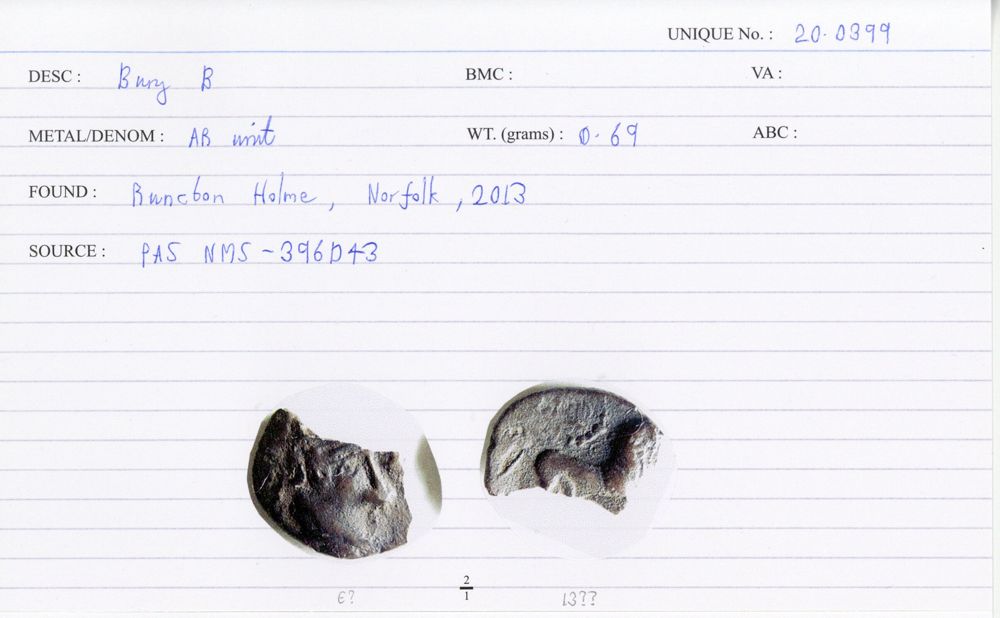 UNIQUE No. : 20.0399
DESC : Bury B
BMC :
VA :
METAL/DENOM : AR unit
WT. (grams) : 0.69
ABC :
FOUND : Runcton Holme, Norfolk, 2013
SOURCE : PAS NMS-396D43
2
1
E? 13??